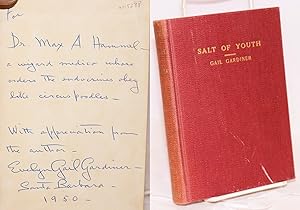 For
Dr. Max A Hammel –
a wizard medico whose
orders the endocrines obey
like circus poodles –
With appreciation from
the author –
Evelyn Gail Gardiner –
Santa Barbara –
1950 –
SALT OF YOUTH
GAIL GARDINER